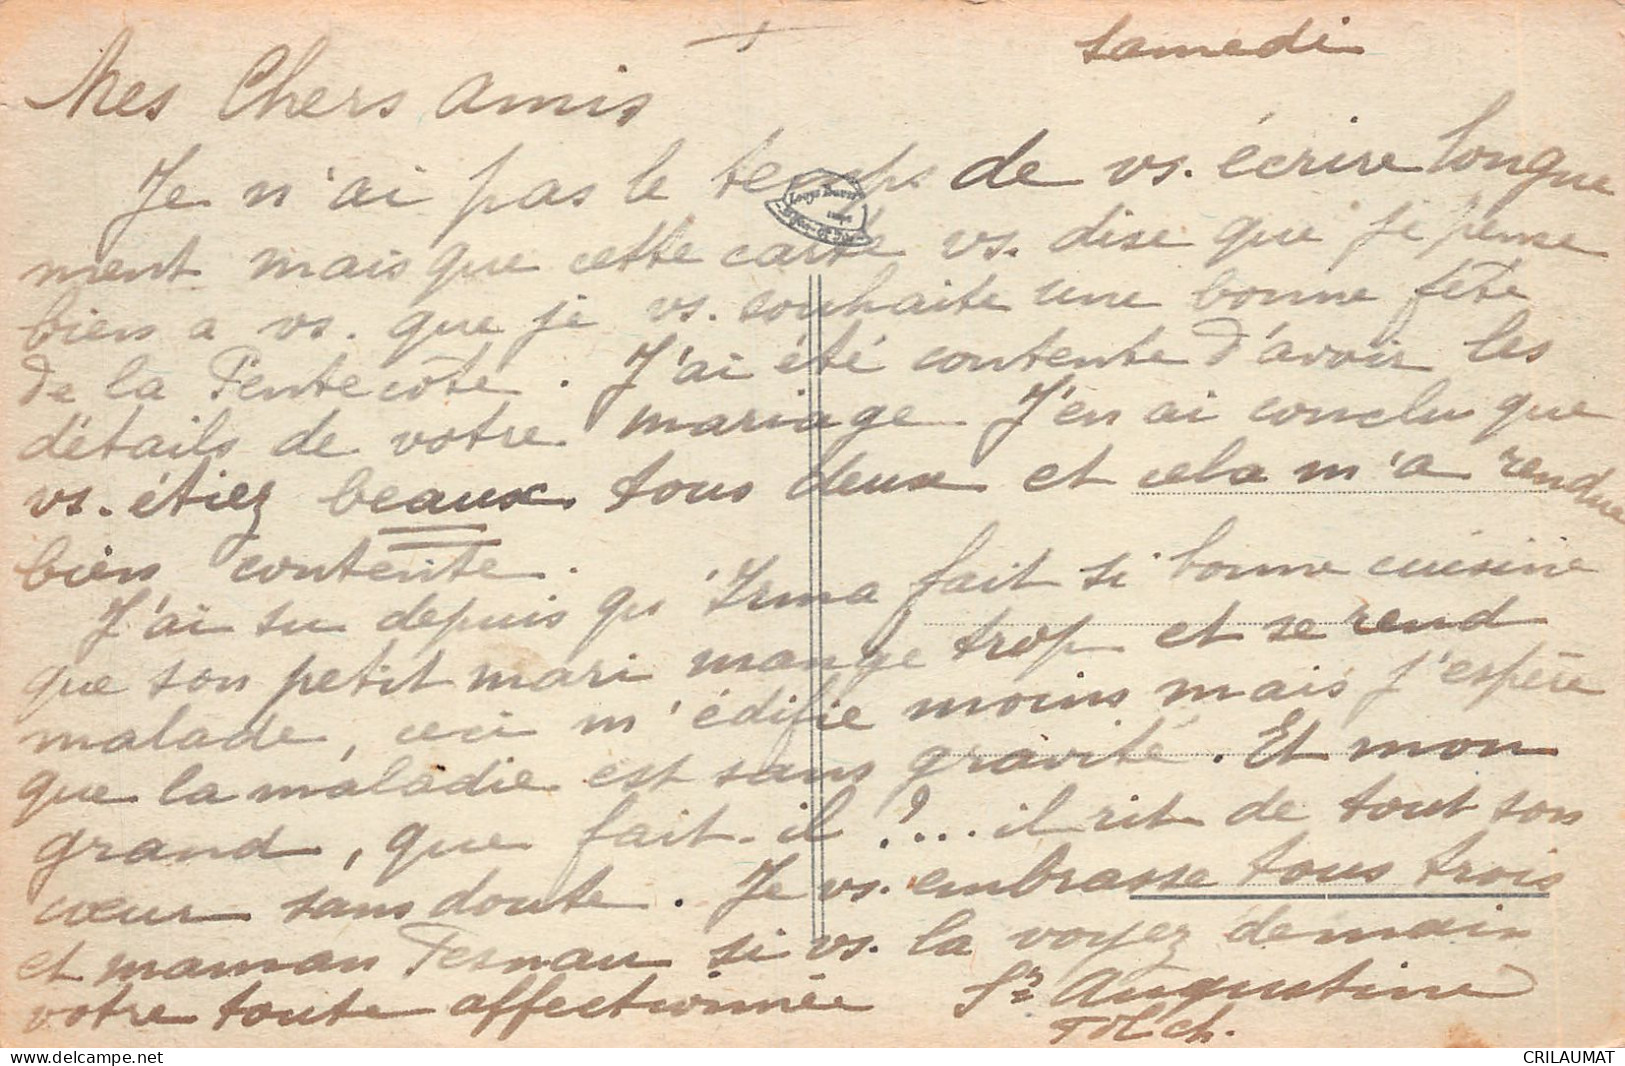 Samedi
Mes Chers amis
Je n'ai pas le temps de vs. écrire longue
ment mais que cette carte vs. dise que je pense
bien a vs. que je vs. souhaite une bonne fête
de la Pentecôte. J'ai été contente d'avoir les
détails de votre mariage. J'en ai conclu que
vs. étiez beaux tous deux et cela m'a rendue
bien contente.
J'ai su depuis qu'Irma fait si bonne cuisine
que son petit mari mange trop et se rend
malade, ceci m'édifie moins mais j'espère
que la maladie est sans gravité. Et mon
grand, que fait-il ?... il rit de tout son
cœur sans doute. Je vs. embrasse tous trois
et maman si vs. la voyez demain
votre toute affectionnée Sr Augustine
CRILAUMAT